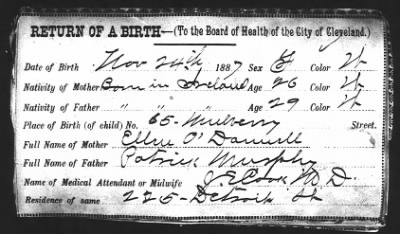 RETURN OF A BIRTH—(To the Board of Health of the City of Cleveland.)
Date of Birth Nov 24th 1887 Sex F Color W
Nativity of Mother Born in Ireland Age 26 Color W
Nativity of Father " " " Age 29 Color W
Place of Birth (of child) No. 65 Mulberry Street.
Full Name of Mother Ellen O'Donnell
Full Name of Father Patrick Murphy
Name of Medical Attendant or Midwife J. E. Cook M D.
Residence of same 225 Detroit St